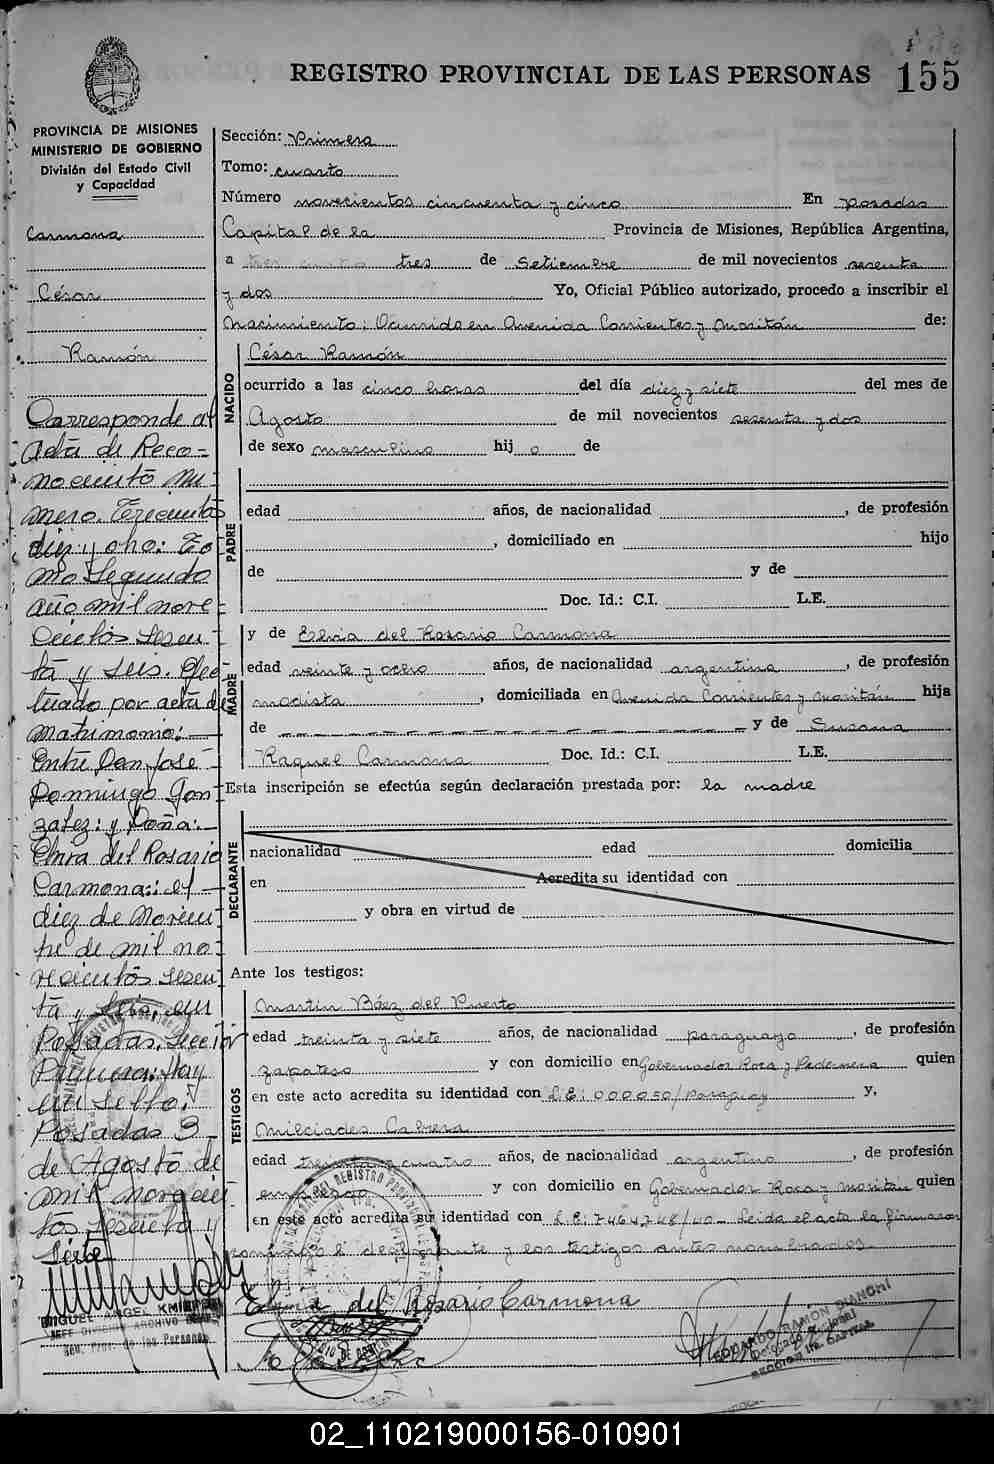 REGISTRO PROVINCIAL DE LAS PERSONAS 155
PROVINCIA DE MISIONES
MINISTERIO DE GOBIERNO
División del Estado Civil
y Capacidad
Carmona
César
Ramón
Corresponde al
Acta de Reco-
nocimiento Nú-
mero. Trecientos
diez y ocho: To
mo Segundo
año mil nove-
cientos sesen-
ta y seis. Efec
tuado por acta de
matrimonio:
Entre Don José
Domingo Gon-
zalez: y Doña:
Elvira del Rosario
Carmona:: el
diez de Noviem-
bre de mil no-
vecientos sesen-
ta y seis, en
Posadas. Sección
Primera: Hay
un sello:
Posadas 3
de Agosto de
mil novecien
tos sesenta y
siete
MIGUEL ANGEL
JEFE DIVISION ARCHIVO
Gen. Prov. de las Personas
Sección: Primera
Tomo: cuarto
Número novecientos cincuenta y cinco En Posadas
Capital de la Provincia de Misiones, República Argentina,
a tres de Setiembre de mil novecientos sesenta
y dos Yo, Oficial Público autorizado, procedo a inscribir el
Nacimiento: Ocurrido en Avenida Corrientes y Moritán de:
NACIDO
César Ramón
ocurrido a las cinco horas del día diez y siete del mes de
Agosto de mil novecientos sesenta y dos
de sexo masculino hij o de
PADRE
edad años, de nacionalidad , de profesión
, domiciliado en hijo
de y de
Doc. Id.: C.I. L.E.
MADRE
y de Elvira del Rosario Carmona
edad veinte y ocho años, de nacionalidad argentina , de profesión
modista , domiciliada en Avenida Corrientes y Moritán hija
de y de Susana
Raquel Carmona Doc. Id.: C.I. L.E.
Esta inscripción se efectúa según declaración prestada por: la madre
DECLARANTE
nacionalidad edad domicilia
en Acredita su identidad con
y obra en virtud de
Ante los testigos:
TESTIGOS
Martin Báez del Puerto
edad treinta y siete años, de nacionalidad paraguayo , de profesión
zapatero y con domicilio en Gobernador Roca y Pedernera quien
en este acto acredita su identidad con L.E: 000050/Paraguay y,
Milciades Cabrera
edad treinta y cuatro años, de nacionalidad argentino , de profesión
empleado y con domicilio en Gobernador Roca y Moritán quien
en este acto acredita su identidad con L.E: 7464748/40- Leida el acta la firmaron
conmigo la declarante y los testigos antes nombrados.
Elvira del Rosario Carmona
EDUARDO RAMON BIANCHI
SECCION 1ra. CAPITAL
02_110219000156-010901